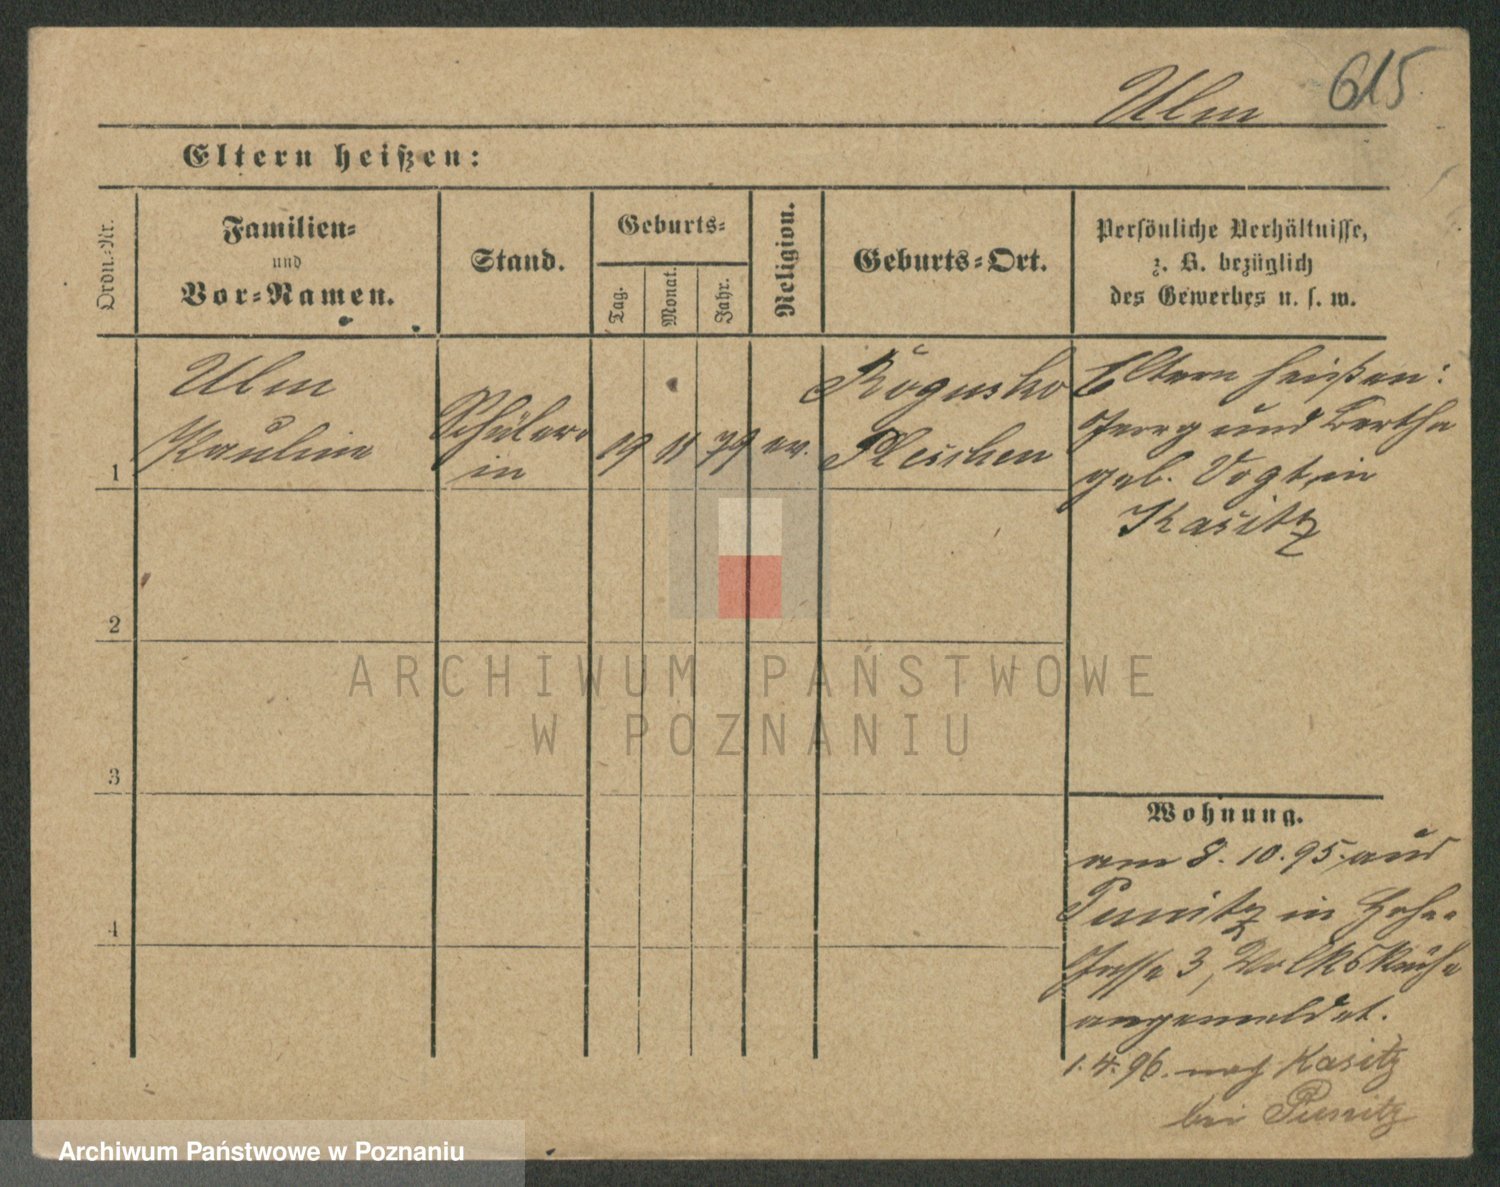 Ulm 615
Eltern heißen:
Ordn.-Nr.
Familien-
und
Vor-Namen.
Stand.
Geburts-
Tag.
Monat.
Jahr.
Religion.
Geburts-Ort.
Persönliche Verhältnisse,
z. B. bezüglich
des Gewerbes u. s. w.
1
Ulm
Pauline
Schüler-
in
19 11 79 ev.
Rogusko
Pleschen
Eltern heißen:
Georg und Bertha
geb. Vogt, in
Kasitz
2
3
4
ARCHIWUM PAŃSTWOWE
W POZNANIU
Wohnung.
am 8. 10. 95 aus
Punitz in Hohe-
Gasse 3, Volksküche
angemeldet.
1. 4. 96. nach Kasitz
bei Punitz
Archiwum Państwowe w Poznaniu